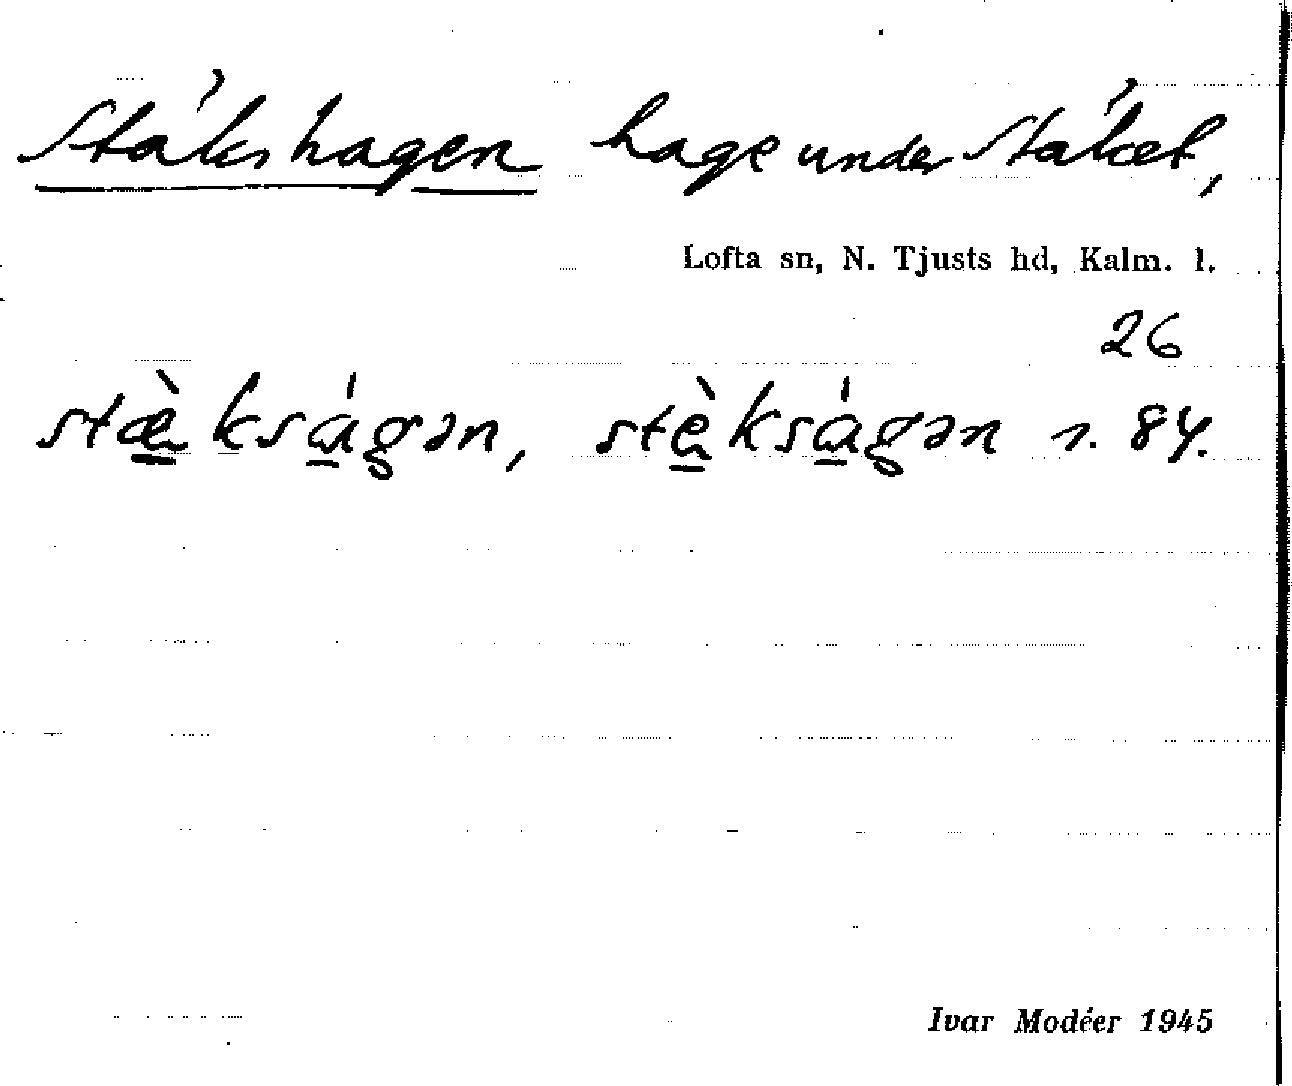 Stäkshagen hage under Stäket,
Lofta sn, N. Tjusts hd, Kalm. l.
26
stæ̱̀ksá̱gən, stè̱ksá̱gən s. 84.
Ivar Modéer 1945